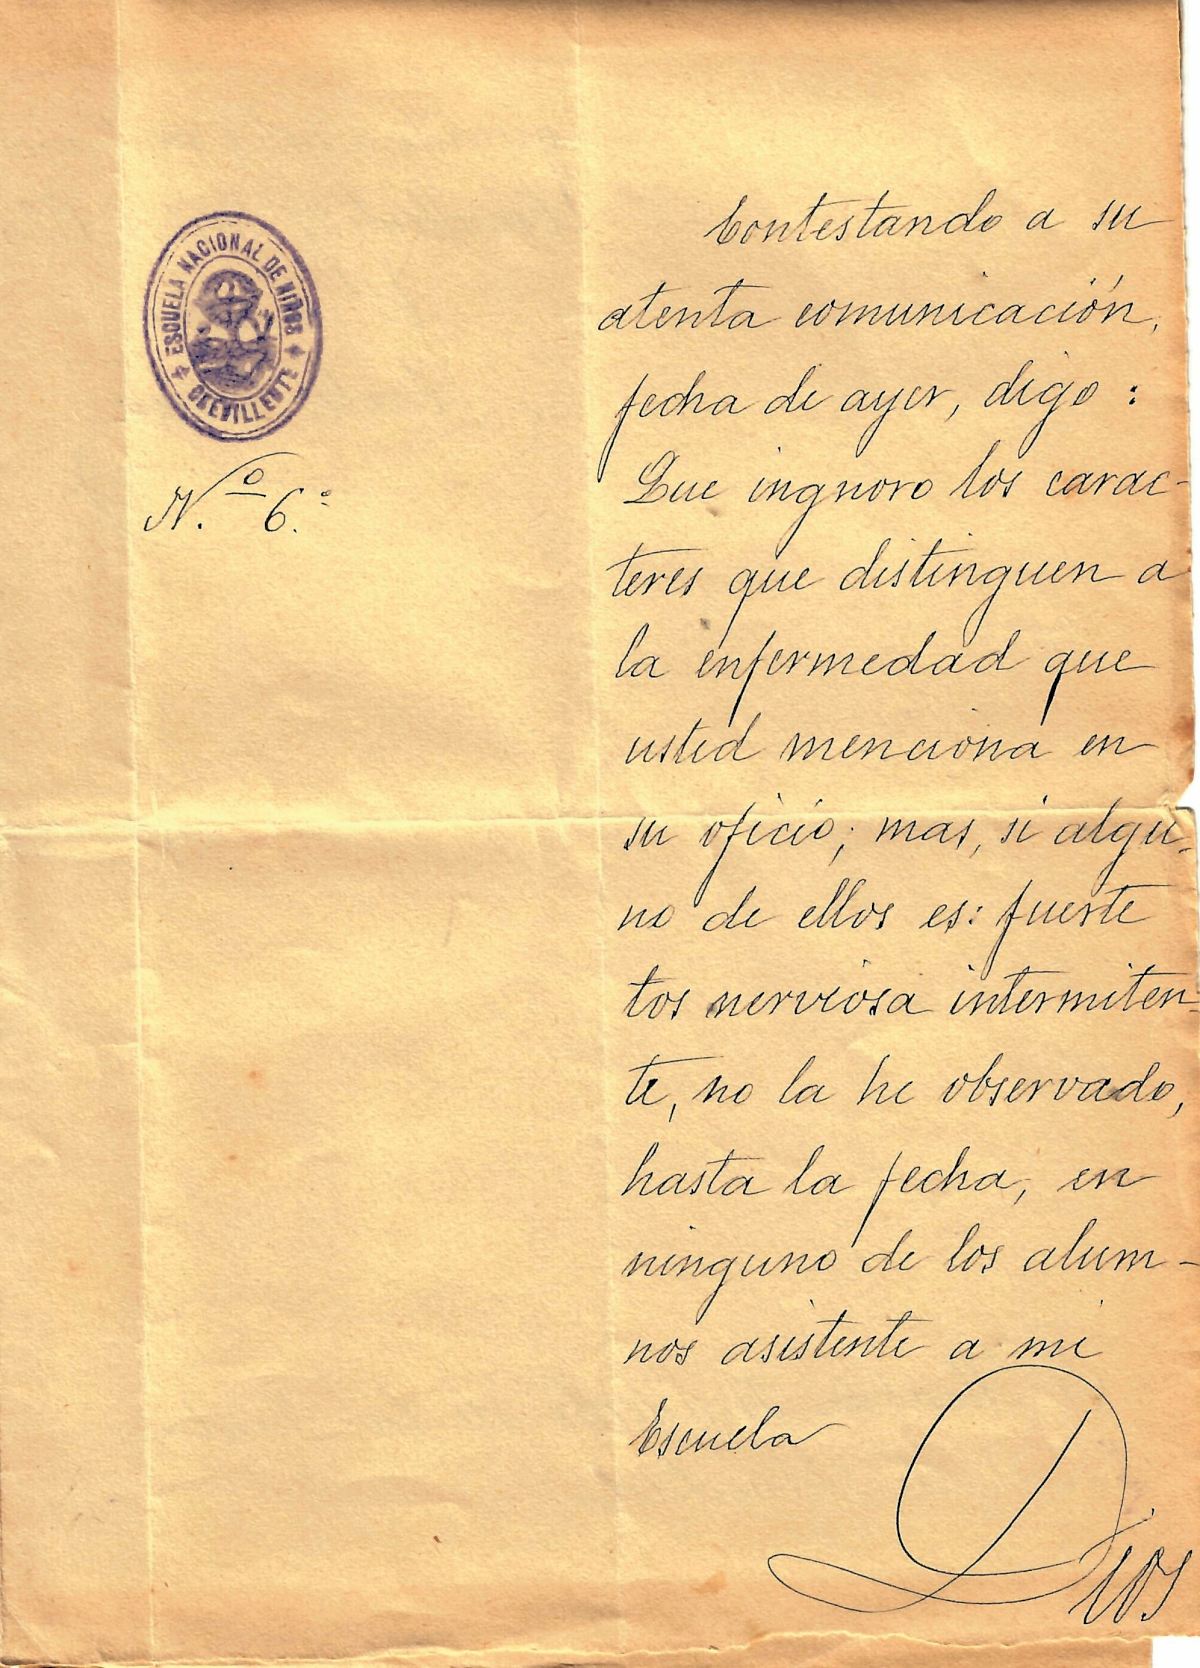 ESCUELA NACIONAL DE NIÑOS
CREVILLENTE
N.º 6.º
Contestando a su
atenta comunicación,
fecha de ayer, digo:
Que ingnoro los carac-
teres que distinguen a
la enfermedad que
usted menciona en
su oficio; mas, si algu-
no de ellos es: fuerte
tos nerviosa intermiten-
te, no la he observado,
hasta la fecha, en
ninguno de los alum-
nos asistente a mi
Escuela
Dios